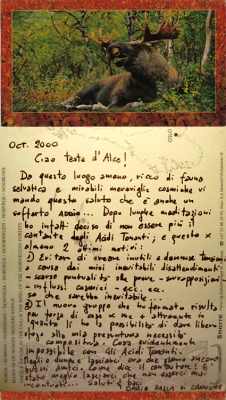 Oct. 2000
Ciao teste d'Alce!
Da questo luogo ameno, ricco di fauna
selvatica e mirabili meraviglie cosmiche vi
mando questo saluto che è anche un
sofferto addio... Dopo lunghe meditazioni
ho infatti deciso di non essere più il
cantante degli Acidi Tonanti; e questo x
almeno 2 ottimi motivi:
1) Evitare di creare inutili e dannose Tensioni
a causa dei miei inevitabili disattendimenti
- scarse puntualità alle prove - supposizioni
- influssi cosmici - ecc. ecc.
so che sarebbe inevitabile...
2) Il nuovo gruppo che ho formato risulta
per forza di cose x me più attraente in
quanto mi dà la possibilità di dare libero
sfogo alla mia presuntuosa necessità
compositiva. Cosa evidentemente
impossibile con gli Acidi Tonanti.
Meglio dunque lasciarci, ora che siamo ancora
buoni amici. Come dice il cantautore: È
stato meglio lasciarci che non esserci mai
incontrati... Saluti &
DARIO PALLA DI CANNONE
OSLO